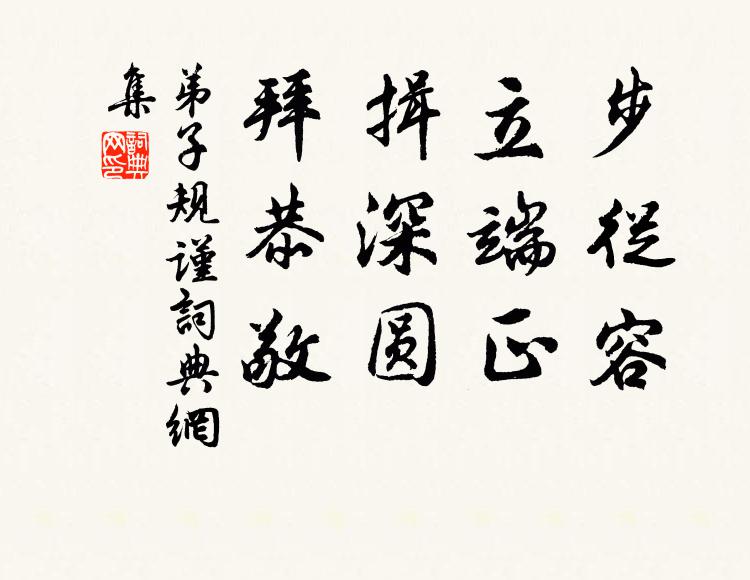 步從容
立端正
揖深圆
拜恭敬
弟子規謹詞典網
集
詞典
网印